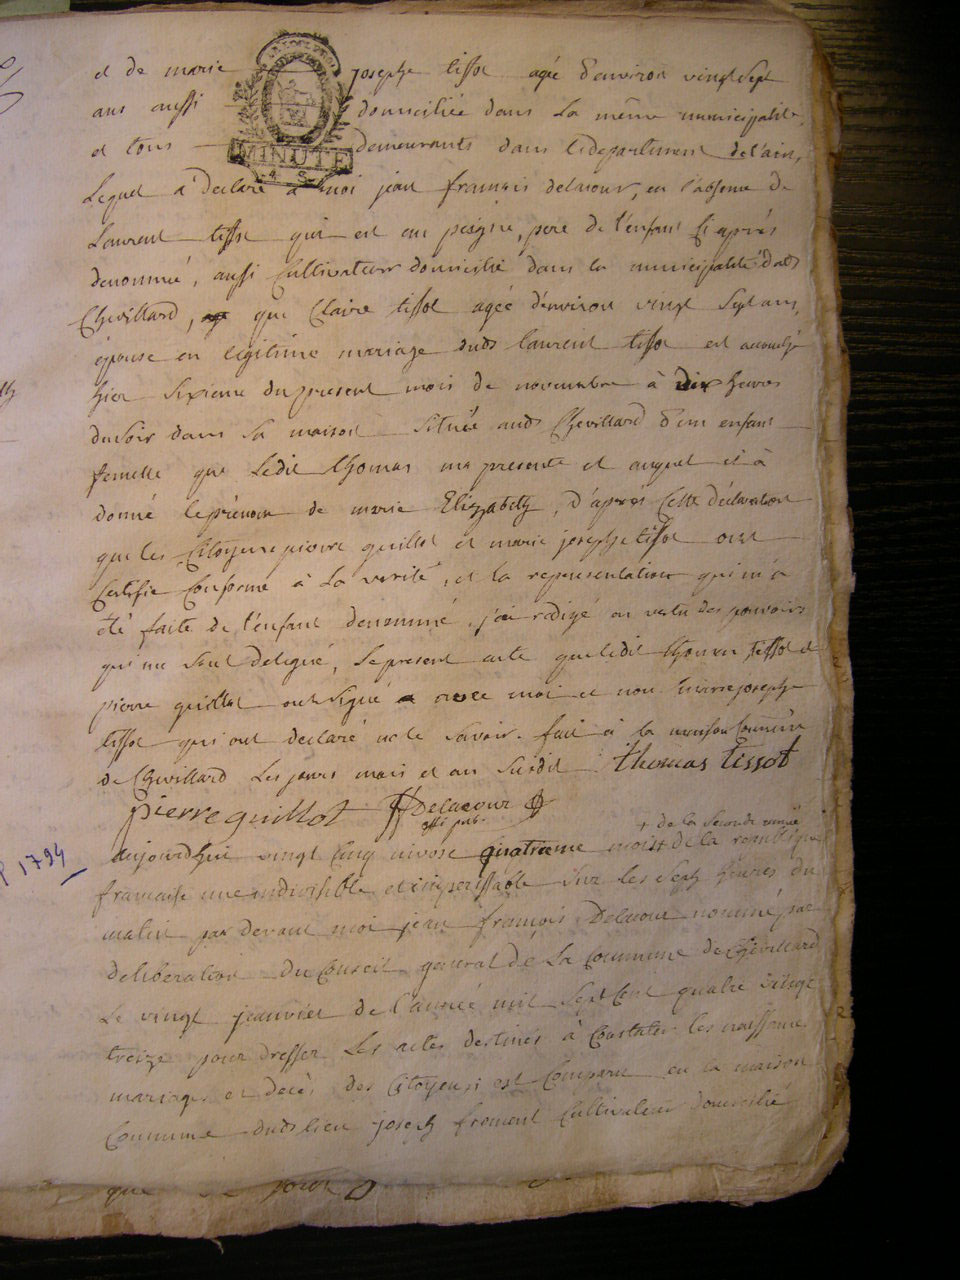 et de marie josephe tissot agée d'environ vingt sept
ans aussi domiciliée dans la même municipalité,
et tous MINUTE demeurants dans le departement de l'ain,
4 S
Lequel a declaré a moi jean francois delacour, en l'absence de
Laurent tissot qui est au peigne, pere de l'enfant ci après
denommé, aussi Cultivateur domicilié dans la municipalité dud
Chevillard, que Claire tissot agée d'environ vingt sept ans,
épouse en légitime mariage dud laurent tissot est accouchée
hier sixieme du present mois de novembre à dix heures
du soir dans sa maison située aud Chevillard d'un enfant
femelle que ledit thomas ma presenté et auquel il à
donné le prénom de marie Elizabeth, d'après cette déclaration
que les Citoyens pierre guillot et marie josephe tissot ont
Certifié Conforme à La verité, et la representation qui m'a
été faite de l'enfant denommé, j'ai redigé en vertu des pouvoirs
qui me sont delegué, le present acte que ledit thomas tissot et
pierre guillot ont signé avec moi et non marie josephe
tissot qui ont declaré ne le savoir. fait à la maison Commune
de Chevillard les jours mois et an susdit thomas tissot
pierre guillot Delacour
offi pub.
+ de la seconde année
P 1794
aujourdhui vingt cinq nivose quatrieme mois + de la republique
francaise une indivisible et imperissable sur les sept heures du
matin par devant moi jean françois Delacour nommé par
deliberation du Conseil general de La Commune de Chevillard
Le vingt jeanvier de l'année mil sept Cent quatre vingt
treize pour dresser Les actes destinés à Constater les naissance
mariages et decès des Citoyens, est Comparu en la maison
Commune dud lieu joseph froment Cultivateur domicilié
que jour